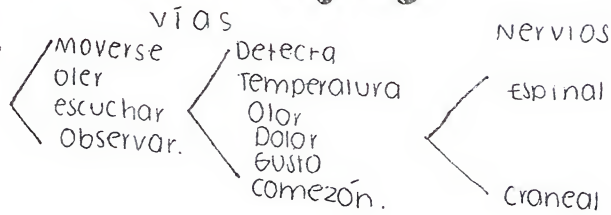 vías
Moverse
oler
escuchar
observar.
Detecta
Temperatura
Olor
Dolor
Gusto
comezón.
Nervios
Espinal
craneal